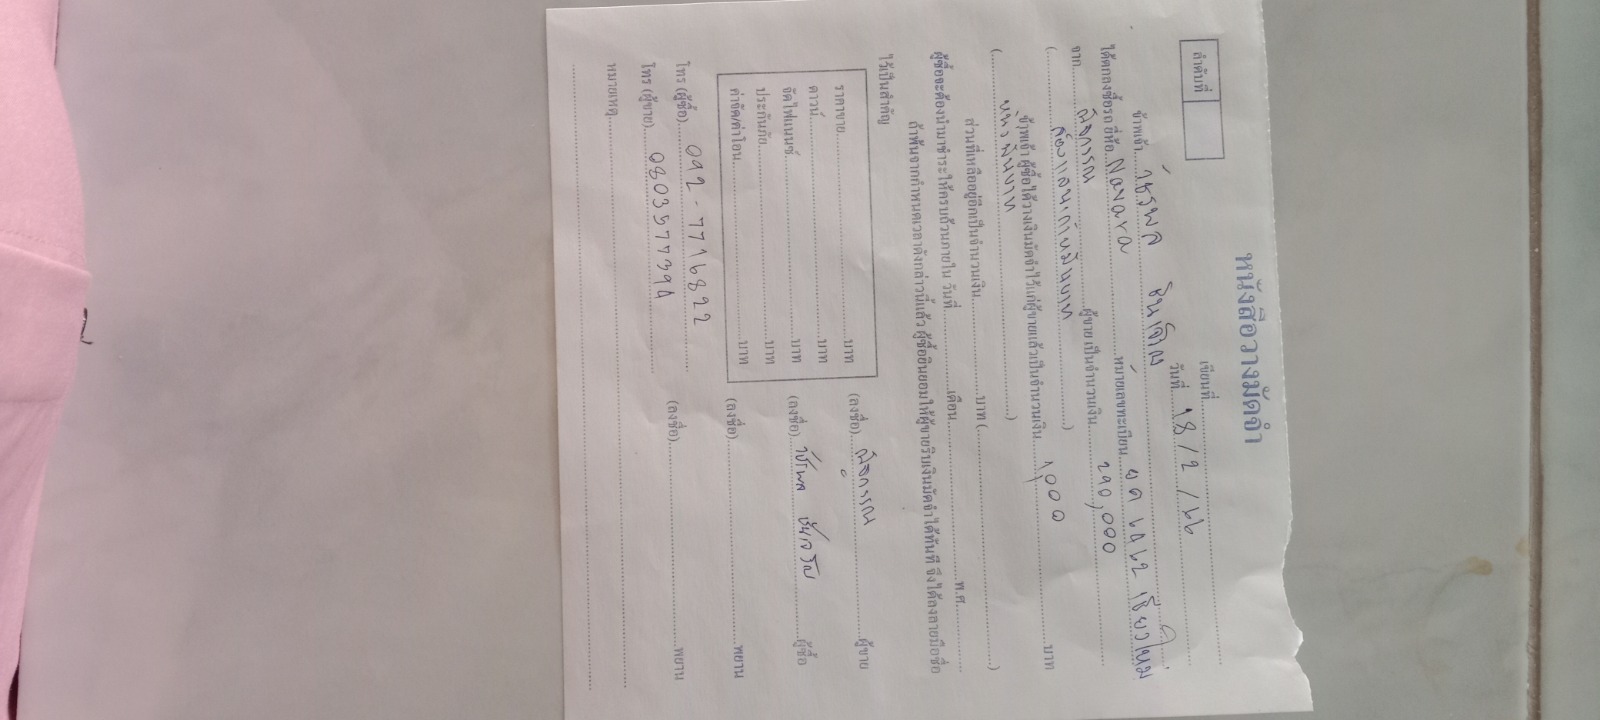 หนังสือวางมัดจำ
ลำดับที่
เขียนที่
วันที่ 18/2/
ข้าพเจ้า วัชรพล
ได้ตกลงซื้อรถ ยี่ห้อ Navara หมายเลขทะเบียน เชียงใหม่
จาก ผู้ขาย เป็นจำนวนเงิน 290,000
(สองแสนเก้าหมื่นบาท)
ข้าพเจ้า ผู้ซื้อได้วางเงินมัดจำไว้แก่ผู้ขายแล้วเป็นจำนวนเงิน 1,000 บาท
(หนึ่งพันบาท)
ส่วนที่เหลืออยู่อีกเป็นจำนวนเงิน บาท ( )
ผู้ซื้อจะต้องนำมาชำระให้ครบถ้วนภายใน วันที่ เดือน พ.ศ.
ถ้าพ้นจากกำหนดเวลาดังกล่าวนี้แล้ว ผู้ซื้อยินยอมให้ผู้ขายริบเงินมัดจำได้ทันที จึงได้ลงลายมือชื่อ
ไว้เป็นสำคัญ
ราคาขาย บาท
ดาวน์ บาท
จัดไฟแนนซ์ บาท
ประกันภัย บาท
ค่าจัด/ค่าโอน บาท
(ลงชื่อ) ผู้ขาย
(ลงชื่อ) วัชรพล ผู้ซื้อ
(ลงชื่อ) พยาน
(ลงชื่อ) พยาน
โทร (ผู้ซื้อ) 092-7716822
โทร (ผู้ขาย) 0803577394
หมายเหตุ